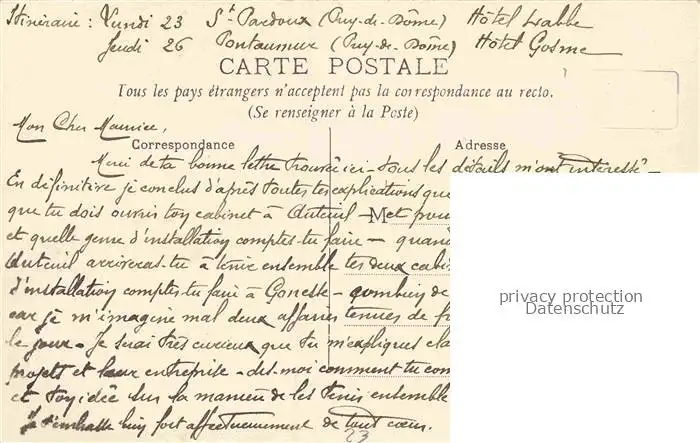 Itinéraire : Lundi 23 St Pardoux (Puy-de-Dôme) Hôtel Labbe
Jeudi 26 Pontaumur (Puy-de-Dôme) Hôtel Gosme
CARTE POSTALE
Tous les pays étrangers n'acceptent pas la correspondance au recto.
(Se renseigner à la Poste)
Mon Cher Maurice,
Correspondance Adresse
Merci de ta bonne lettre trouvée ici - tous les détails m'ont intéressé -
En définitive je conclus d'après toutes tes explications que
que tu dois ouvrir ton cabinet à Auteuil - Met pour
et quelle genre d'installation comptes-tu faire - quand
Auteuil arriveras-tu à tenir ensemble tes deux cabi
d'installation comptes-tu faire à Gonesse - combien de
car je m'imagine mal deux affaires tenues de fr
le jour - Je serai très curieux que tu m'expliques cla
projets et leur entreprise - dis-moi comment tu com
et ton idée sur la manière de les tenir ensemble
Je t'embrasse bien fort affectueusement de tout cœur.
23
privacy protection
Datenschutz